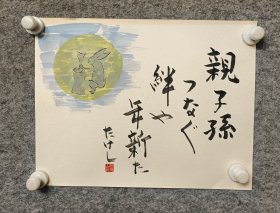 親子孫
つなぐ
絆や
年新た
たけし